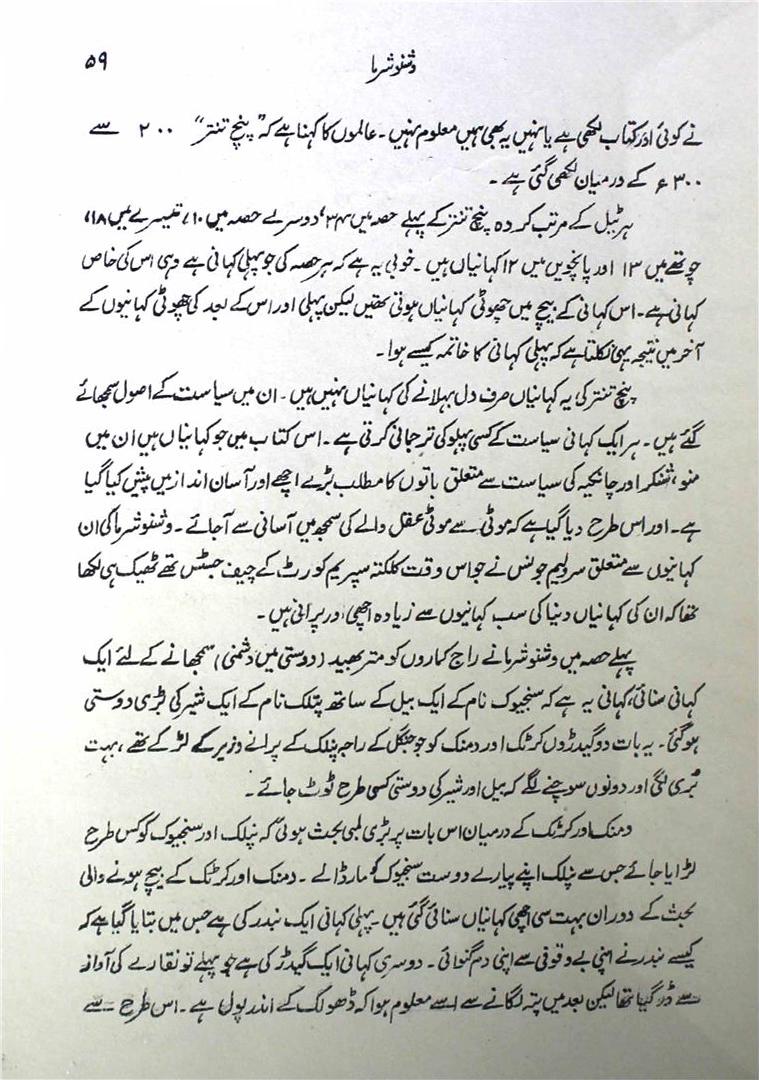 وشنو شرما ۵۹
نے کوئی اور کتاب لکھی ہے یا نہیں یہ بھی ہمیں معلوم نہیں۔ عالموں کا کہنا ہے کہ "پنچ تنتر" ۲۰۰ سے
۳۰۰ء کے درمیان لکھی گئی ہے۔
ہرٹیل کے مرتب کردہ پنچ تنتر کے پہلے حصہ میں ۳۴، دوسرے حصہ میں ۱۰، تیسرے میں ۱۸،
چوتھے میں ۱۳ اور پانچویں میں ۱۲ کہانیاں ہیں۔ خوبی یہ ہے کہ ہر حصہ کی جو پہلی کہانی ہے وہی اس کی خاص
کہانی ہے۔ اس کہانی کے بیچ میں چھوٹی کہانیاں ہوتی تھیں لیکن پہلی اور اس کے بعد کی چھوٹی کہانیوں کے
آخر میں نتیجہ یہی نکلتا ہے کہ پہلی کہانی کا خاتمہ کیسے ہوا۔
پنچ تنتر کی یہ کہانیاں صرف دل بہلانے کی کہانیاں نہیں ہیں۔ ان میں سیاست کے اصول سمجھائے
گئے ہیں۔ ہر ایک کہانی سیاست کے کسی پہلو کی ترجمانی کرتی ہے۔ اس کتاب میں جو کہانیاں ہیں ان میں
منو، شکر اور چانکیہ کی سیاست سے متعلق باتوں کا مطلب بڑے اچھے اور آسان انداز میں پیش کیا گیا
ہے۔ اور اس طرح دیا گیا ہے کہ موٹی سے موٹی عقل والے کی سمجھ میں آسانی سے آجائے۔ وشنو شرما کی ان
کہانیوں سے متعلق سر ولیم جونس نے جو اس وقت کلکتہ سپریم کورٹ کے چیف جسٹس تھے ٹھیک ہی لکھا
تھا کہ ان کی کہانیاں دنیا کی سب کہانیوں سے زیادہ اچھی اور پرانی ہیں۔
پہلے حصہ میں وشنو شرما نے راج کماروں کو متر بھید (دوستی میں دشمنی) سمجھانے کے لئے ایک
کہانی سنائی، کہانی یہ ہے کہ سنجیوک نام کے ایک بیل کے ساتھ پنلک نام کے ایک شیر کی بڑی دوستی
ہو گئی۔ یہ بات دو گیدڑوں کرٹک اور دمنک کو جو جنگل کے راجہ پنلک کے پرانے وزیر کے لڑکے تھے، بہت
بُری لگی اور دونوں سوچنے لگے کہ بیل اور شیر کی دوستی کسی طرح ٹوٹ جائے۔
دمنک اور کرٹک کے درمیان اس بات پر بڑی لمبی بحث ہوئی کہ پنلک اور سنجیوک کو کس طرح
لڑایا جائے جس سے پنلک اپنے پیارے دوست سنجیوک کو مار ڈالے۔ دمنک اور کرٹک کے بیچ ہونے والی
بحث کے دوران بہت سی اچھی کہانیاں سنائی گئی ہیں۔ پہلی کہانی ایک بندر کی ہے جس میں بتایا گیا ہے کہ
کیسے بندر نے اپنی بے وقوفی سے اپنی دم گنوائی۔ دوسری کہانی ایک گیدڑ کی ہے جو پہلے تو نقارے کی آواز
سے ڈر گیا تھا لیکن بعد میں پتہ لگانے سے اسے معلوم ہوا کہ ڈھولک کے اندر پول ہے۔ اس طرح سے